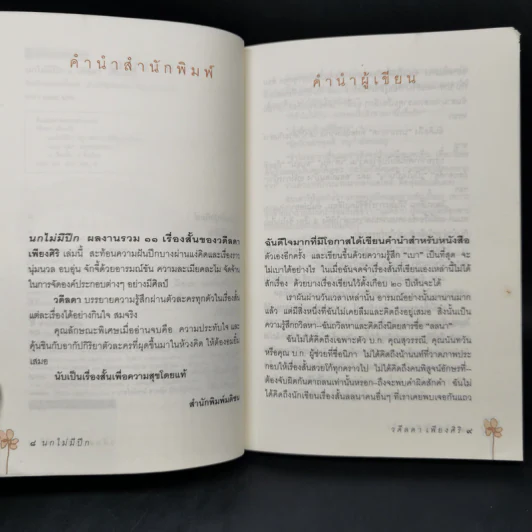 คำนำสำนักพิมพ์
นกไม่มีปีก ผลงานรวม ๑๑ เรื่องสั้นของวดีลดา
เพียงศิริ เล่มนี้ สะท้อนความฝันปีกบางผ่านแง่คิดและเรื่องราว
นุ่มนวล อบอุ่น จักจี้ด้วยอารมณ์ขัน ความละเมียดละไม จัดจ้าน
ในการจัดองค์ประกอบต่างๆ อย่างมีศิลป์
วดีลดา บรรยายความรู้สึกผ่านตัวละครทุกตัวในเรื่องสั้น
แต่ละเรื่องได้อย่างกินใจ สมจริง
คุณลักษณะพิเศษเมื่ออ่านจบคือ ความประทับใจ และ
คุ้นชินกับอากัปกิริยาตัวละครที่ผุดขึ้นมาในห้วงคิด ให้ต้องอมยิ้ม
เสมอ
นับเป็นเรื่องสั้นเพื่อความสุขโดยแท้
สำนักพิมพ์มติชน
๘ นกไม่มีปีก
คำนำผู้เขียน
ฉันดีใจมากที่มีโอกาสได้เขียนคำนำสำหรับหนังสือ
ตัวเองอีกครั้ง และเขียนขึ้นด้วยความรู้สึก "เบา" เป็นที่สุด จะ
ไม่เบาได้อย่างไร ในเมื่อฉันจดจำเรื่องสั้นที่เขียนเองเหล่านี้ไม่ได้
สักเรื่อง ด้วยบางเรื่องเขียนไว้ตั้งเกือบ ๒๐ ปีให้จนะได้
เราฉันผ่านวันเวลาเหล่านั้น อารมณ์อย่างนั้นมานานมาก
แล้ว แต่มีสิ่งหนึ่งที่ฉันไม่เคยลืมและคิดถึงอยู่เสมอ สิ่งนั้นเป็น
ความรู้สึกถวิลหา-ฉันถวิลหาและคิดถึงนิตยสารชื่อ "ลลนา"
ฉันไม่ได้คิดถึงเฉพาะตัว บ.ก. คุณสุวรรณี คุณนันทวัน
หรือคุณ บ.ก. ผู้ช่วยที่ชื่อนิภา ไม่ได้คิดถึงน้านนท์ที่วาดภาพประ
กอบให้เรื่องสั้นสวยโก้ทุกคราวไป ไม่ได้คิดถึงคนพิสูจน์อักษรที่
ต้องจับผิดกันตาถลนเท่านั้นหรอก-ถึงจะพบคำผิดสักคำ ฉันไม่
ได้คิดถึงนักเขียนเรื่องสั้นลลนาคนอื่นๆ ที่เราเคยพบเจอกันแถว
วดีลดา เพียงศิริ ๙